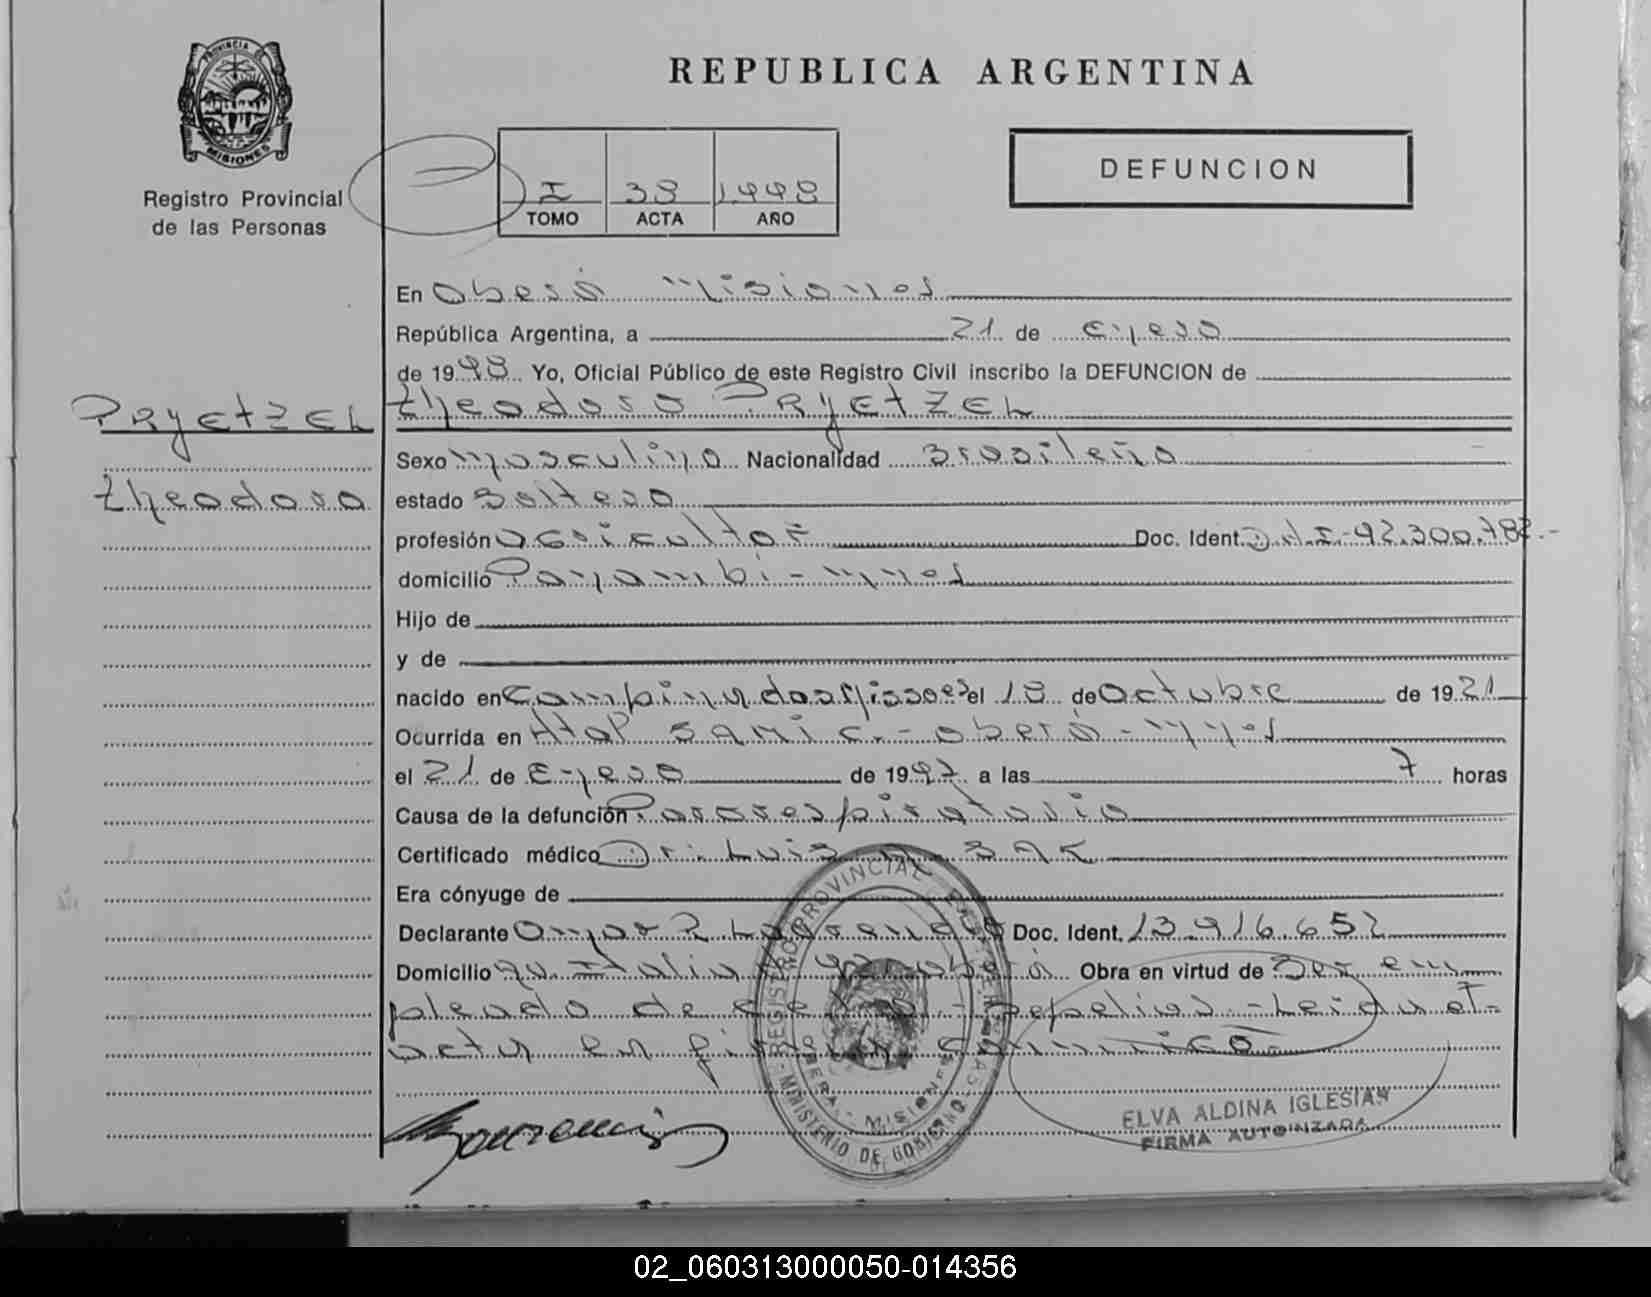 PROVINCIA DE
MISIONES
Registro Provincial
de las Personas
REPUBLICA ARGENTINA
I 38 1998
TOMO ACTA AÑO
DEFUNCION
En Oberá Misiones
República Argentina, a 21 de Enero
de 1998 Yo, Oficial Público de este Registro Civil inscribo la DEFUNCION de
PRYETZEL
theodoro PRYETZEL
Sexo masculino Nacionalidad Brasileña
theodoro
estado Soltero
profesión agricultor Doc. Ident. D.N.I-92.300.782.-
domicilio Panambi - Mnes
Hijo de
y de
nacido en Campina das Missoes el 18 de Octubre de 1921
Ocurrida en Htal SAMIC.- oberá - Mnes
el 21 de Enero de 1997 a las 7 horas
Causa de la defunción Pararespiratorio
Certificado médico Dr. Luis
Era cónyuge de
Declarante Omar R. Doc. Ident. 13.916.652
Domicilio av. Italia oberá Obra en virtud de Ser em
pleado de sepelios - Leida el
acta en
REGISTRO PROVINCIAL DE LAS PERSONAS
OBERA - MISIONES
MINISTERIO DE GOBIERNO
ELVA ALDINA IGLESIAS
FIRMA AUTORIZADA
02_060313000050-014356